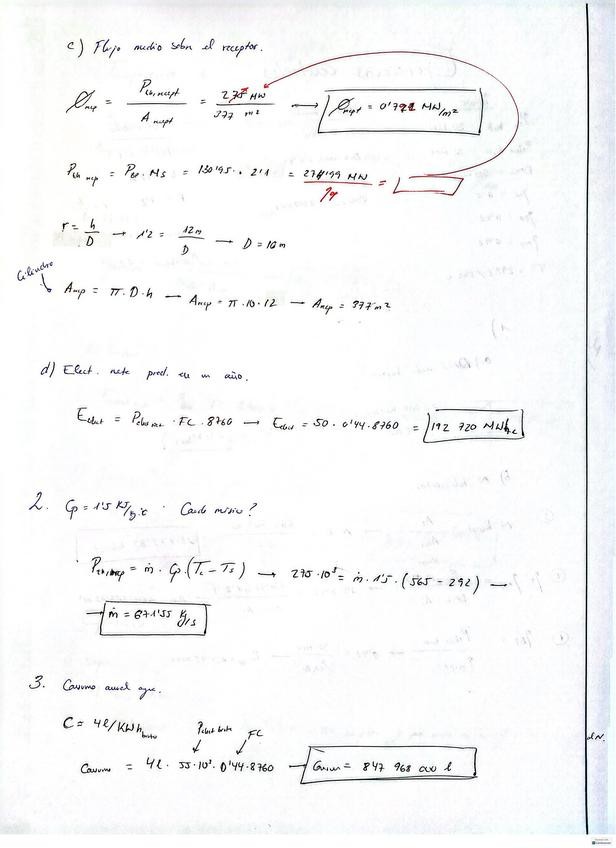 c) Flujo medio sobre el receptor.
Φrecp = Pth, recept / A recept = 275 MW / 377 m² → Φrecpt = 0'721 MW/m²
Pth recp = PBP · MS = 130'95 · 2'1 = 274'99 MW / = 
r = h/D → 1'2 = 12m/D → D = 10m
Cilindro
Arecp = π · D · h → Arecp = π · 10 · 12 → Arecp = 377m²
d) Elect. neta prod. en un año.
Eelect = Pelect net · FC · 8760 → Eelect = 50 · 0'44 · 8760 = 192 720 MWhe
2. Cp = 1'5 KJ/kg·ºC · Caudal másico?
Pth, recep = ṁ · Cp · (Tc - Ts) → 275·10³ = ṁ · 1'5 · (565 - 292) →
→ ṁ = 671'55 kg/s
3. Consumo anual agua.
C = 4l/KWh bruto
Pelect bruta FC
Consumo = 4l · 55·10³ · 0'44 · 8760 → Consum = 847 968 000 l
d N.